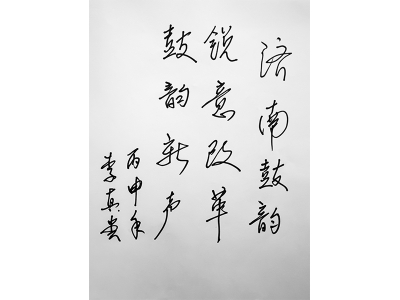 济南鼓韵
锐意改革
鼓韵新声
丙申年
李真贵